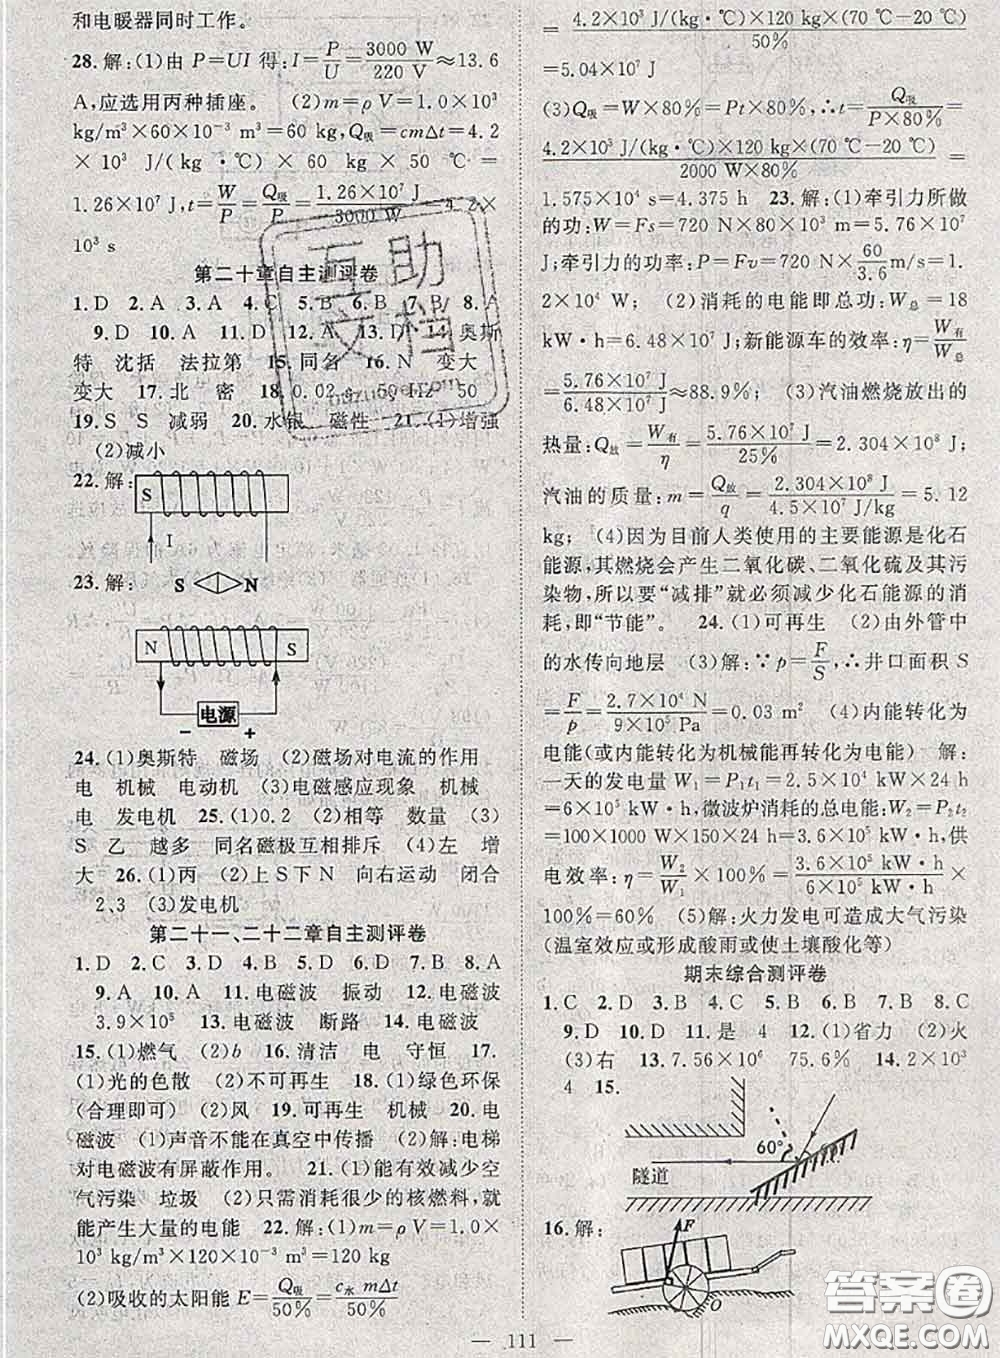 和电暖器同时工作。
28.解:(1)由 P=UI 得:I=P/U=3000 W/220 V≈13.6
A,应选用丙种插座。 (2)m=ρV=1.0×10³
kg/m³×60×10⁻³ m³=60 kg,Q吸=cmΔt=4.2
×10³ J/(kg·℃)×60 kg×50 ℃=
1.26×10⁷ J,t=W/P=Q吸/P=1.26×10⁷ J/3000 W=4.2×
10³ s
第二十章自主测评卷
1.D 2.A 3.A 4.C 5.B 6.B 7.B 8.A
9.D 10.A 11.D 12.A 13.D 14.奥斯
特 沈括 法拉第 15.同名 16.N 变大
变大 17.北 密 18.0.02 s 50 Hz 50
19.S S 减弱 20.水银 磁性 21.(1)增强
(2)减小
22.解:
S
I
23.解:
S N
N S
电源
- +
24.(1)奥斯特 磁场 (2)磁场对电流的作用
电 机械 电动机 (3)电磁感应现象 机械
电 发电机 25.(1)0.2 (2)相等 数量 (3)
S 乙 越多 同名磁极互相排斥 (4)左 增
大 26.(1)丙 (2)上S下N 向右运动 闭合
2、3 (3)发电机
第二十一、二十二章自主测评卷
1.D 2.C 3.C 4.D 5.C 6.D 7.B 8.A
9.A 10.A 11.电磁波 振动 12.电磁波
3.9×10⁵ 13.电磁波 断路 14.电磁波
15.(1)燃气 (2)b 16.清洁 电 守恒 17.
(1)光的色散 (2)不可再生 18.(1)绿色环保
(合理即可) (2)风 19.可再生 机械 20.电
磁波 (1)声音不能在真空中传播 (2)解:电梯
对电磁波有屏蔽作用。 21.(1)能有效减少空
气污染 垃圾 (2)只需消耗很少的核燃料,就
能产生大量的电能 22.解:(1)m=ρV=1.0×
10³ kg/m³×120×10⁻³ m³=120 kg
(2)吸收的太阳能 E=Q吸/50%=c水mΔt/50%
=4.2×10³ J/(kg·℃)×120 kg×(70 ℃-20 ℃)/50%
=5.04×10⁷ J
(3)Q吸=W×80%=Pt×80%,∴t=Q吸/P×80%=
4.2×10³ J/(kg·℃)×120 kg×(70 ℃-20 ℃)/2000 W×80%=
1.575×10⁴ s=4.375 h 23.解:(1)牵引力所做
的功:W=Fs=720 N×80×10³ m=5.76×10⁷
J;牵引力的功率:P=Fv=720 N×60/3.6 m/s=1.
2×10⁴ W; (2)消耗的电能即总功:W总=18
kW·h=6.48×10⁷ J;新能源车的效率:η=W有/W总
=5.76×10⁷ J/6.48×10⁷ J≈88.9%; (3)汽油燃烧放出的
热量:Q放=W有/η=5.76×10⁷ J/25%=2.304×10⁸ J;
汽油的质量:m=Q放/q=2.304×10⁸ J/4.5×10⁷ J/kg=5.12
kg; (4)因为目前人类使用的主要能源是化石
能源,其燃烧会产生二氧化碳、二氧化硫及其污
染物,所以要“减排”就必须减少化石能源的消
耗,即“节能”。 24.(1)可再生 (2)由外管中
的水传向地层 (3)解:∵p=F/S,∴井口面积 S
=F/p=2.7×10⁴ N/9×10⁵ Pa=0.03 m² (4)内能转化为
电能(或内能转化为机械能再转化为电能) 解:
一天的发电量 W₁=P₁t₁=2.5×10⁴ kW×24 h
=6×10⁵ kW·h,微波炉消耗的总电能:W₂=P₂t₂
=100×1000 W×150×24 h=3.6×10⁵ kW·h,供
电效率:η=W₂/W₁×100%=3.6×10⁵ kW·h/6×10⁵ kW·h×
100%=60% (5)解:火力发电可造成大气污染
(温室效应或形成酸雨或使土壤酸化等)
期末综合测评卷
1.C 2.D 3.B 4.C 5.B 6.D 7.B 8.C
9.D 10.D 11.是 4 12.(1)省力 (2)火
(3)右 13.7.56×10⁶ 75.6% 14.2×10³
4 15.
60°
隧道
16.解:
F
O
— 111 —
互助
文档
huzuwd.com
答案圈
MXQE.COM